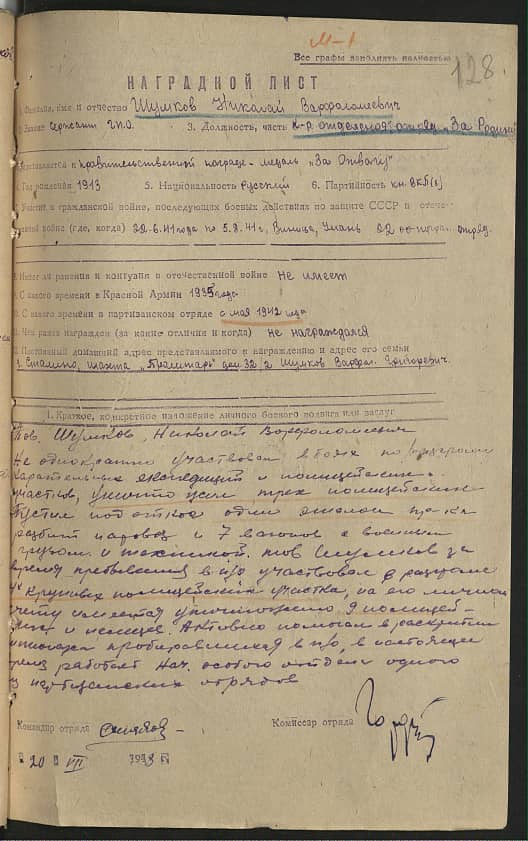 М-1
Все графы заполнять полностью
128
НАГРАДНОЙ ЛИСТ
1. Фамилия, имя и отчество Шумков Николай Варфоломеевич
2. Звание сержант 3. Должность, часть к-р отделения отряд "За Родину"
Представляется к правительственной награде - медаль "За Отвагу"
4. Год рождения 1913 5. Национальность Русский 6. Партийность кн. ВКП(б)
7. Участие в гражданской войне, последующих боевых действиях по защите СССР и отече-
ственной войне (где, когда) 22-6.41 года по 5.8.41 г., Виница, Умань 22 отряд.
8. Имеет ли ранения и контузии в отечественной войне Не имеет
9. С какого времени в Красной Армии 1935 года
10. С какого времени в партизанском отряде с мая 1942 года
11. Чем ранее награжден (за какие отличия и когда) не награждался
12. Постоянный домашний адрес представляемого к награждению и адрес его семьи
г. Сталино, шахта "Пролетарь" дом 32, 2 Шумков Варфол. Григоревич.
1. Краткое, конкретное изложение личного боевого подвига или заслуг
Тов. Шумков, Николай Варфоломеевич
Не однократно участвовал в боях по
карательных экспедиций и полицейских
участков, уничтожил трех полицейских
Пустил под откос один эшелон
разбит паровоз и 7 вагонов с военным
грузом и техникой. тов Шумков за
время пребывания в п/о участвовал в разгроме
4х крупных полицейских участка, на его личном
счету имеется уничтожено 9 полицей-
ских и немцев. Активно помогал в раскрытии
шпионажа пробиравшихся в п/о, в настоящее
время работает нач. особого отдела одного
из партизанских отрядов
Командир отряда Комиссар отряда
" 20 " VII 1943 г.